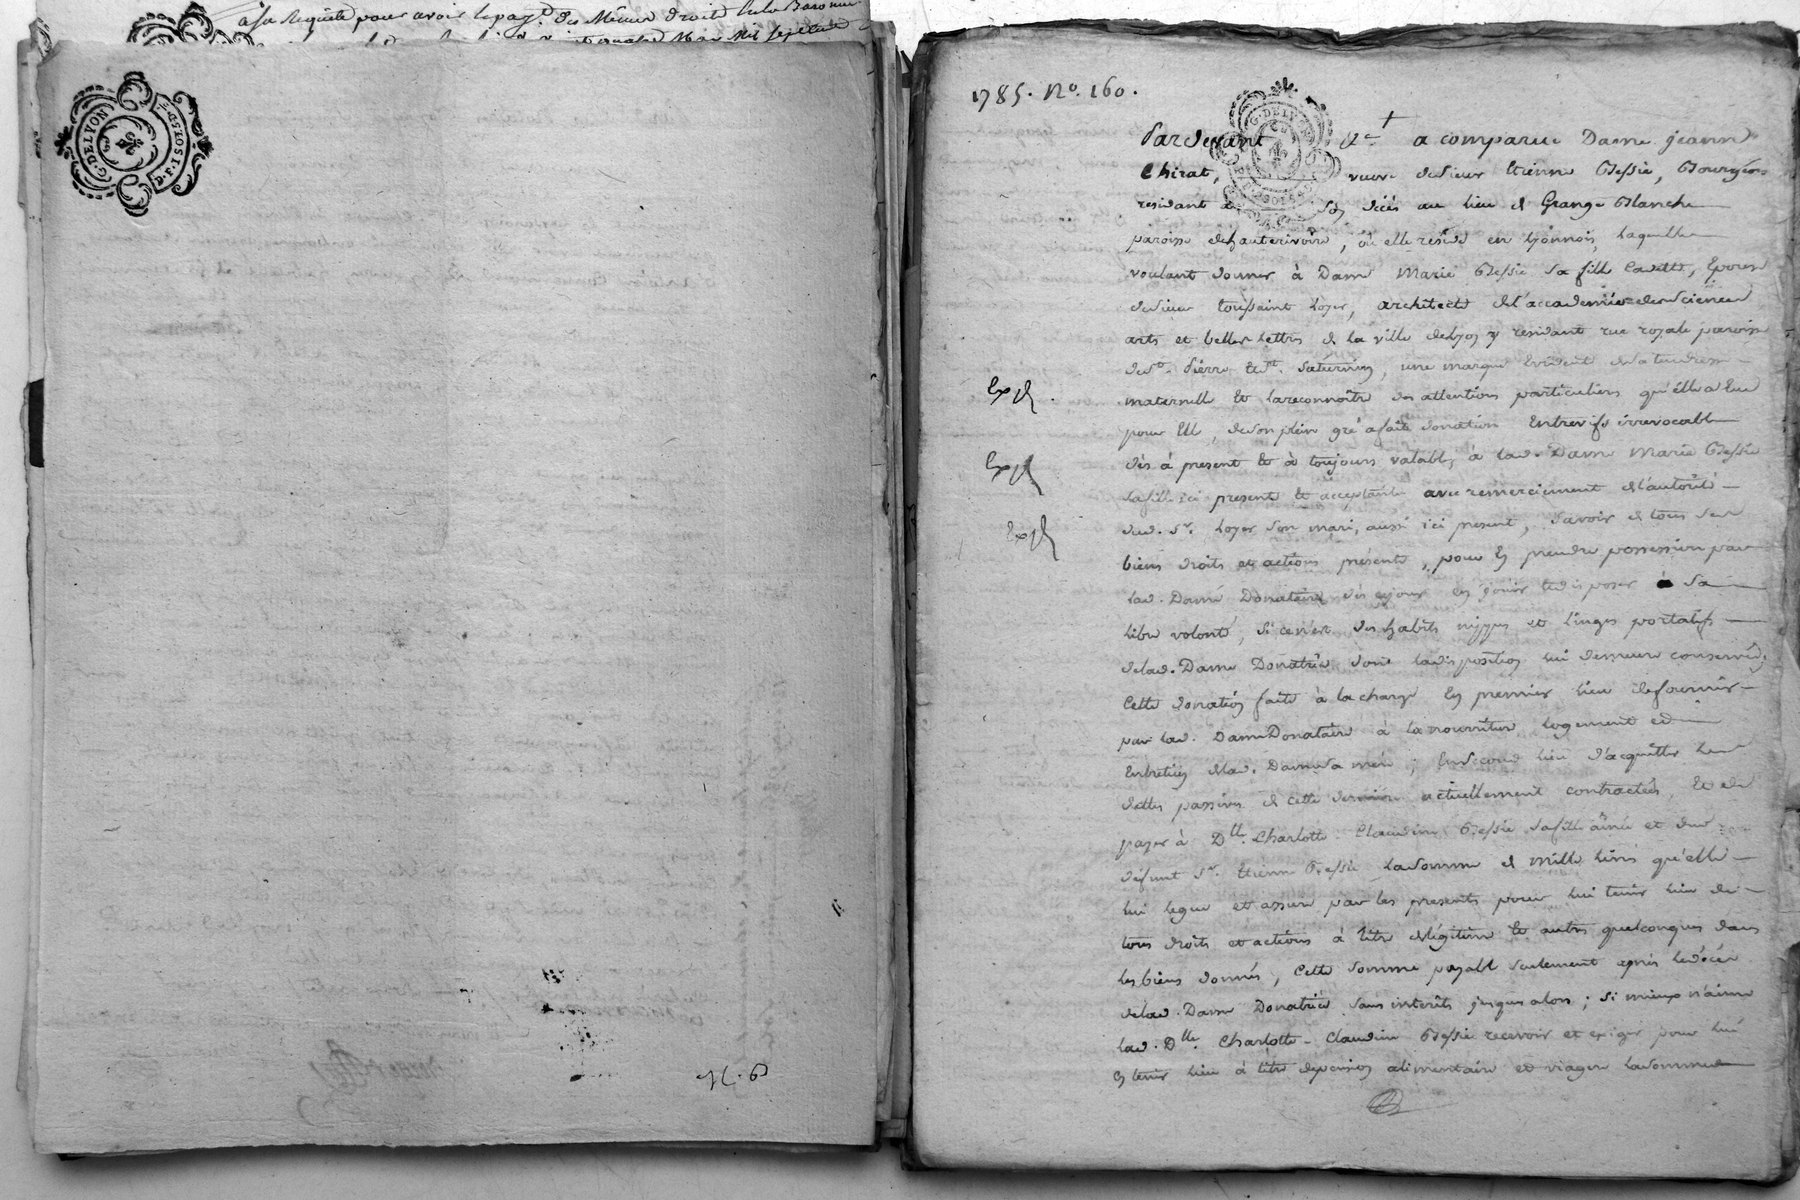 a sa Requete pour avoir le pay.t des Mêmes droit
G. DE LYON
2 SOLS 5 D.F.
1785. No. 160.
Pardevant &c.a a comparue Dame jeanne
Chirat, veuve de sieur Etienne Bessie, Bourgeois
residant a son décés au lieu de Grange Blanche
paroisse dehauterivoire, où elle reside en lyonnois, laquelle
voulant donner à Dame Marie Bessie sa fille Cadette, Epouse
de sieur toussaint loyer, architecte de l'accademie des Sciences
arts et belles lettres de la ville de lyon y residant rue royale paroisse
de St. Pierre et St. Saturnin, une marque Evidente de sa tendresse
maternelle Et la reconnoitre des attentions particulieres qu'elle a Eue
Exp.
pour Elle, de son plein gré a fait donation Entrevifs irrevocable
dès à present Et à toujours valable, à lad. Dame Marie Bessie
Exp.
sa fille ici presente Et acceptante avec remerciement de l'autorité
dud. Sr. loyer son mari, aussi ici present, Savoir de tous ses
Exp.
biens droits et actions présents, pour En prendre possession par
lad. Dame Donataire dès ce jour En jouir Et disposer à Sa
libre volonté, Si ce n'est des habits nippes et linges portatifs
de lad. Dame Donatrice dont la disposition lui demeure conservée
Cette donation faite à la charge En premier lieu de fournir
par lad. Dame Donataire à la nourriture logement et
Entretien de lad. Dame sa mere; En second lieu d'acquitter les
dettes passives de cette derniere actuellement contractées, Et de
payer à Dlle. Charlotte Claudine Bessie sa fille ainée et dud.
défunt Sr. Etienne Bessie la somme de mille livres qu'elle
lui legue et assure par les presentes pour lui tenir lieu de
tous droits et actions à titre de légitime Et autres quelconques dans
les biens donnés, Cette somme payable seulement après le décés
de lad. Dame Donatrice sans interêts jusques alors; Si mieux n'aime
lad. Dlle. Charlotte Claudine Bessie recevoir et exiger pour lui
En tenir lieu à titre de pension alimentaire et viagere la somme de